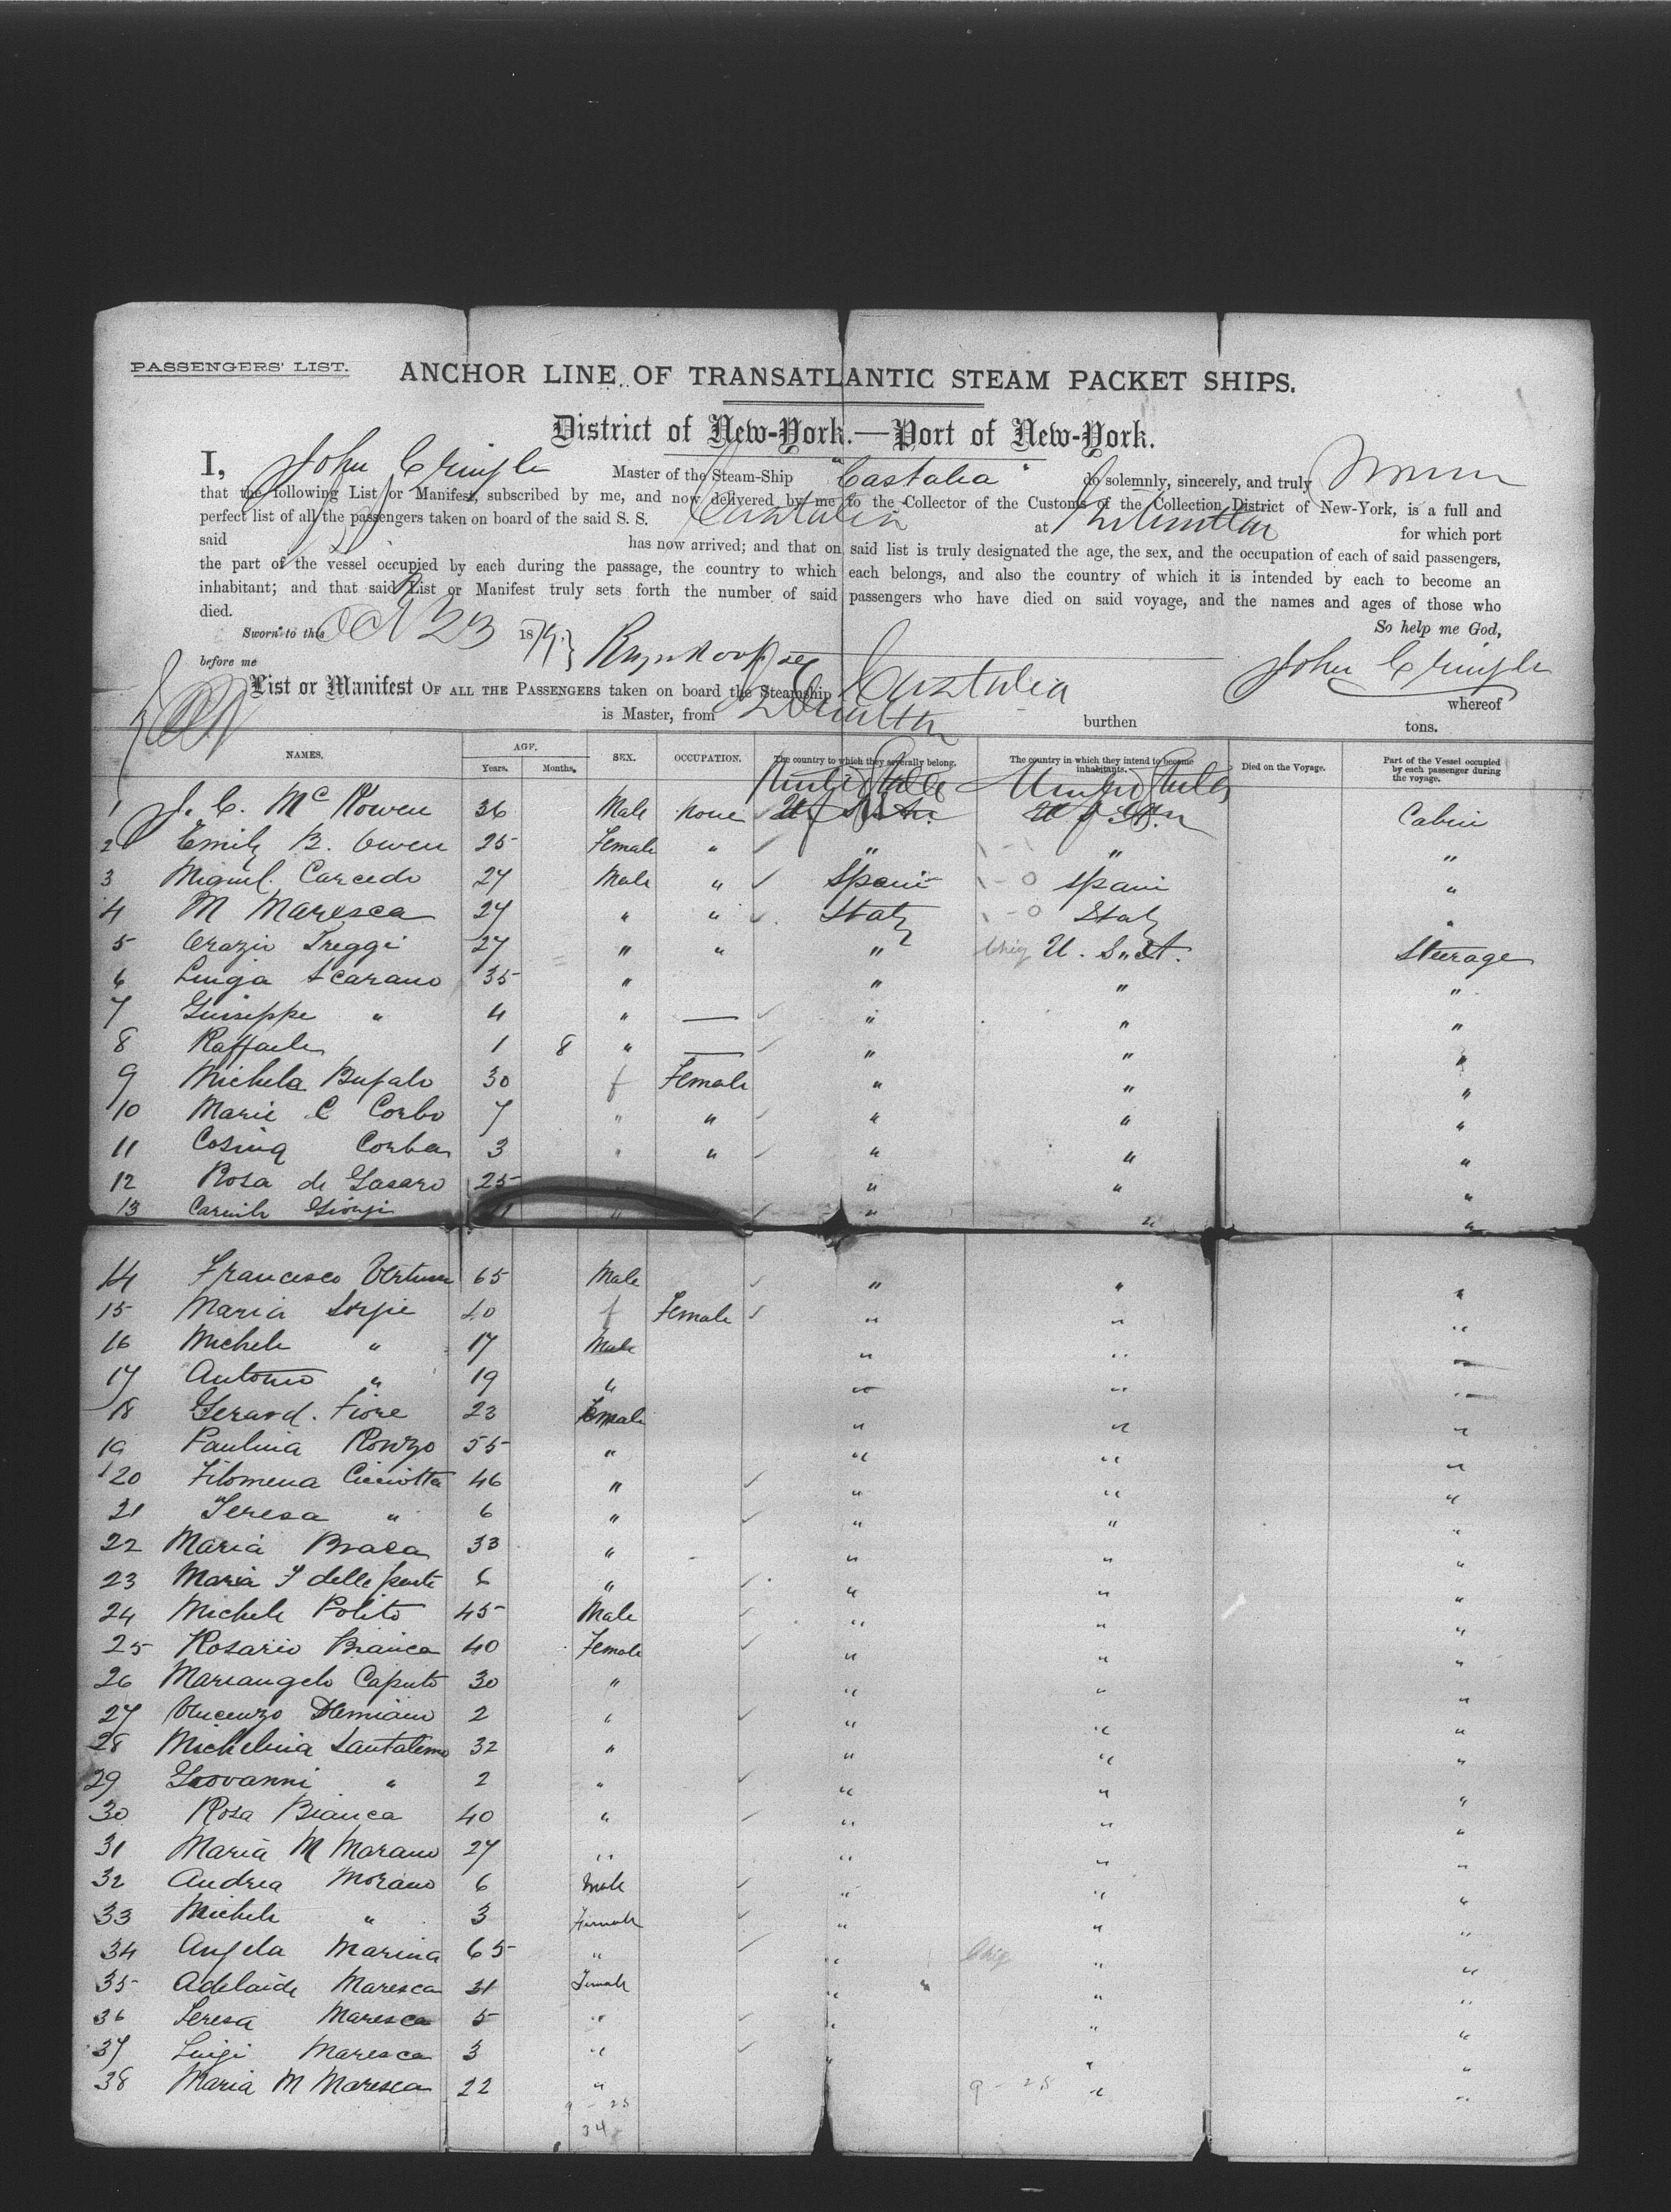 PASSENGERS' LIST.
ANCHOR LINE OF TRANSATLANTIC STEAM PACKET SHIPS.
District of New-York.—Port of New-York.
I, John Cringle Master of the Steam-Ship "Castalia" do solemnly, sincerely, and truly
that the following List or Manifest, subscribed by me, and now delivered by me to the Collector of the Customs of the Collection District of New-York, is a full and
perfect list of all the passengers taken on board of the said S. S. Castalia at for which port
said has now arrived; and that on said list is truly designated the age, the sex, and the occupation of each of said passengers,
the part of the vessel occupied by each during the passage, the country to which each belongs, and also the country of which it is intended by each to become an
inhabitant; and that said List or Manifest truly sets forth the number of said passengers who have died on said voyage, and the names and ages of those who
died.
So help me God,
Sworn to this Oct 23 1879.
before me John Cringle
List or Manifest OF ALL THE PASSENGERS taken on board the Steamship Castalia whereof
is Master, from burthen tons.
NAMES. AGE. Years. Months. SEX. OCCUPATION. The country to which they severally belong. The country in which they intend to become inhabitants. Died on the Voyage. Part of the Vessel occupied by each passenger during the voyage.
United States United States
1 J. C. McKowen 36 Male None Cabin
2 Emily B. Owen 25 Female " " " "
3 Miguel Carcedo 24 Male " Spain Spain "
4 M Maresca 24 " " Italy Italy "
5 Orazio Treggi 27 " " " U. S. Steerage
6 Luigia Scarano 35 " " " "
7 Guiseppe " 4 " — " " "
8 Raffaele 1 8 " — " " "
9 Michela Bufalo 30 f Female " " "
10 Marie C Corbo 7 " " " " "
11 Corba 3 " " " " "
12 Rosa de 25 " " "
13 " " " "
14 Francesco 65 Male " " "
15 Maria 40 f Female " " "
16 Michele " 17 Male " " "
17 Antonio " 19 " " " "
18 Gerard. Fiore 23 Female " " "
19 Paulina Ronzo 55 " " " "
20 Filomena Cicciotta 46 " " " "
21 Teresa " 6 " " " "
22 Maria Braca 33 " " " "
23 Maria F delle 6 " " " "
24 Michele Polito 45 Male " " "
25 Rosario Bianca 40 Female " " "
26 Mariangelo Caputo 30 " " " "
27 Vincenzo Demiano 2 " " " "
28 Michelina 32 " " " "
29 Giovanni " 2 " " " "
30 Rosa Bianca 40 " " " "
31 Maria M Morano 27 " " " "
32 Andrea Morano 6 Male " " "
33 Michele " 3 Female " " "
34 Angela Marina 65 " " " "
35 Adelaide Maresca 31 Female " " "
36 Teresa Maresca 5 " " " "
37 Luigi Maresca 3 " " " "
38 Maria M Maresca 22 " " " "
34